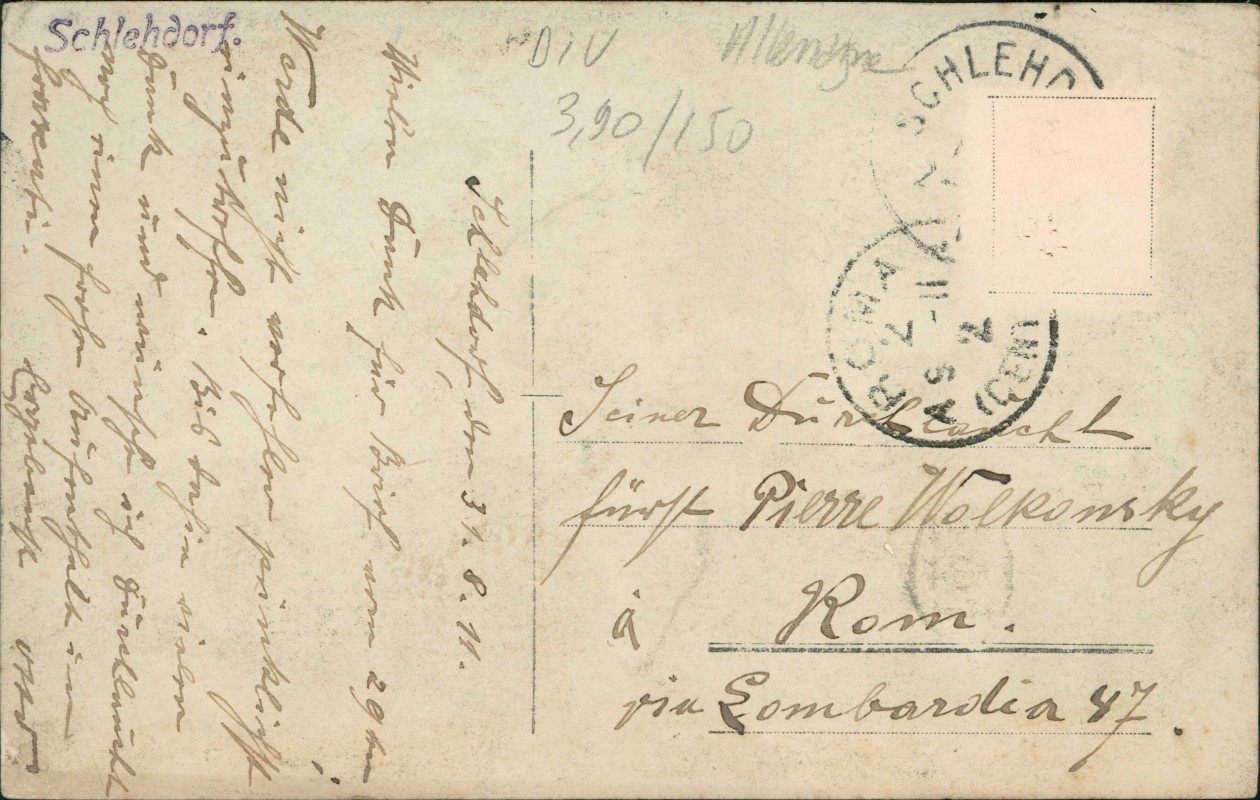 Schlehdorf.
DIV
3,90/150
SCHLEHD
ROMA
(CENT
Schlehdorf, den 31. 8. 11.
Vielen Dank für Brief vom 29ten
Werde nicht verfehlen pünktlich
einzutreffen. Bis dahin vielen
Dank und wünsche ich Durchlaucht
noch einen frohen Aufenthalt in
Otto
Seiner Durchlaucht
Fürst Pierre Wolkonsky
à Rom.
via Lombardia 47.